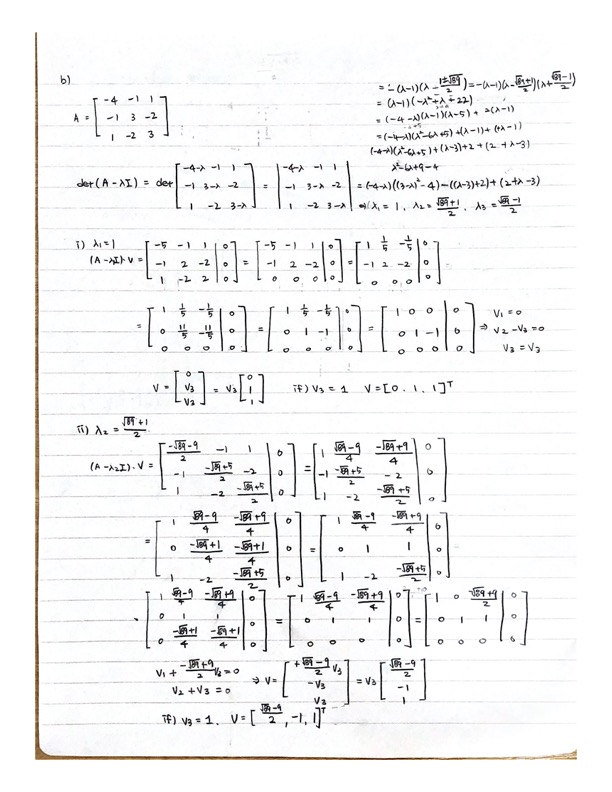 b)
A = [ -4 -1 1
-1 3 -2
1 -2 3 ]
= -(λ-1)(λ - (1±√89)/2) = -(λ-1)(λ - (√89+1)/2)(λ + (√89-1)/2)
= (λ-1)(-λ²-λ+22)
= (-4-λ)(λ-1)(λ-5) + 2(λ-1)
= (-4-λ)(λ²-6λ+5) + (λ-1) + (+λ-1)
(-4-λ)(λ²-6λ+5) + (λ-3) + 2 + (2+λ-3)
λ²-6λ+9-4
det(A-λI) = det [ -4-λ -1 1
-1 3-λ -2
1 -2 3-λ ] = | -4-λ -1 1
-1 3-λ -2
1 -2 3-λ | = (-4-λ)((3-λ)²-4) - ((λ-3)+2) + (2+λ-3)
⇒ λ₁ = 1, λ₂ = (√89+1)/2, λ₃ = (√89-1)/2
i) λ₁=1
(A-λI)·V = [ -5 -1 1 | 0
-1 2 -2 | 0
1 -2 2 | 0 ] = [ -5 -1 1 | 0
-1 2 -2 | 0
0 0 0 | 0 ] = [ 1 1/5 -1/5 | 0
-1 2 -2 | 0
0 0 0 | 0 ]
= [ 1 1/5 -1/5 | 0
0 11/5 -11/5 | 0
0 0 0 | 0 ] = [ 1 1/5 -1/5 | 0
0 1 -1 | 0
0 0 0 | 0 ] = [ 1 0 0 | 0
0 1 -1 | 0
0 0 0 | 0 ] ⇒ V₁=0
V₂-V₃=0
V₃=V₃
V = [ 0
V₃
V₃ ] = V₃ [ 0
1
1 ] if) V₃ = 1 V=[0, 1, 1]ᵀ
ii) λ₂ = (√89+1)/2
(A-λ₂I)·V = [ (-√89-9)/2 -1 1 | 0
-1 (-√89+5)/2 -2 | 0
1 -2 (-√89+5)/2 | 0 ] = [ 1 (√89-9)/4 (-√89+9)/4 | 0
-1 (-√89+5)/2 -2 | 0
1 -2 (-√89+5)/2 | 0 ]
= [ 1 (√89-9)/4 (-√89+9)/4 | 0
0 (-√89+1)/4 (-√89+1)/4 | 0
1 -2 (-√89+5)/2 | 0 ] = [ 1 (√89-9)/4 (-√89+9)/4 | 0
0 1 1 | 0
1 -2 (-√89+5)/2 | 0 ]
· [ 1 (√89-9)/4 (-√89+9)/4 | 0
0 1 1 | 0
0 (-√89+1)/4 (-√89+1)/4 | 0 ] = [ 1 (√89-9)/4 (-√89+9)/4 | 0
0 1 1 | 0
0 0 0 | 0 ] = [ 1 0 (-√89+9)/2 | 0
0 1 1 | 0
0 0 0 | 0 ]
V₁ + (-√89+9)/2 V₃ = 0
V₂+V₃ = 0
⇒ V = [ +(√89-9)/2 V₃
-V₃
V₃ ] = V₃ [ (√89-9)/2
-1
1 ]
if) V₃ = 1, V = [ (√89-9)/2, -1, 1 ]ᵀ